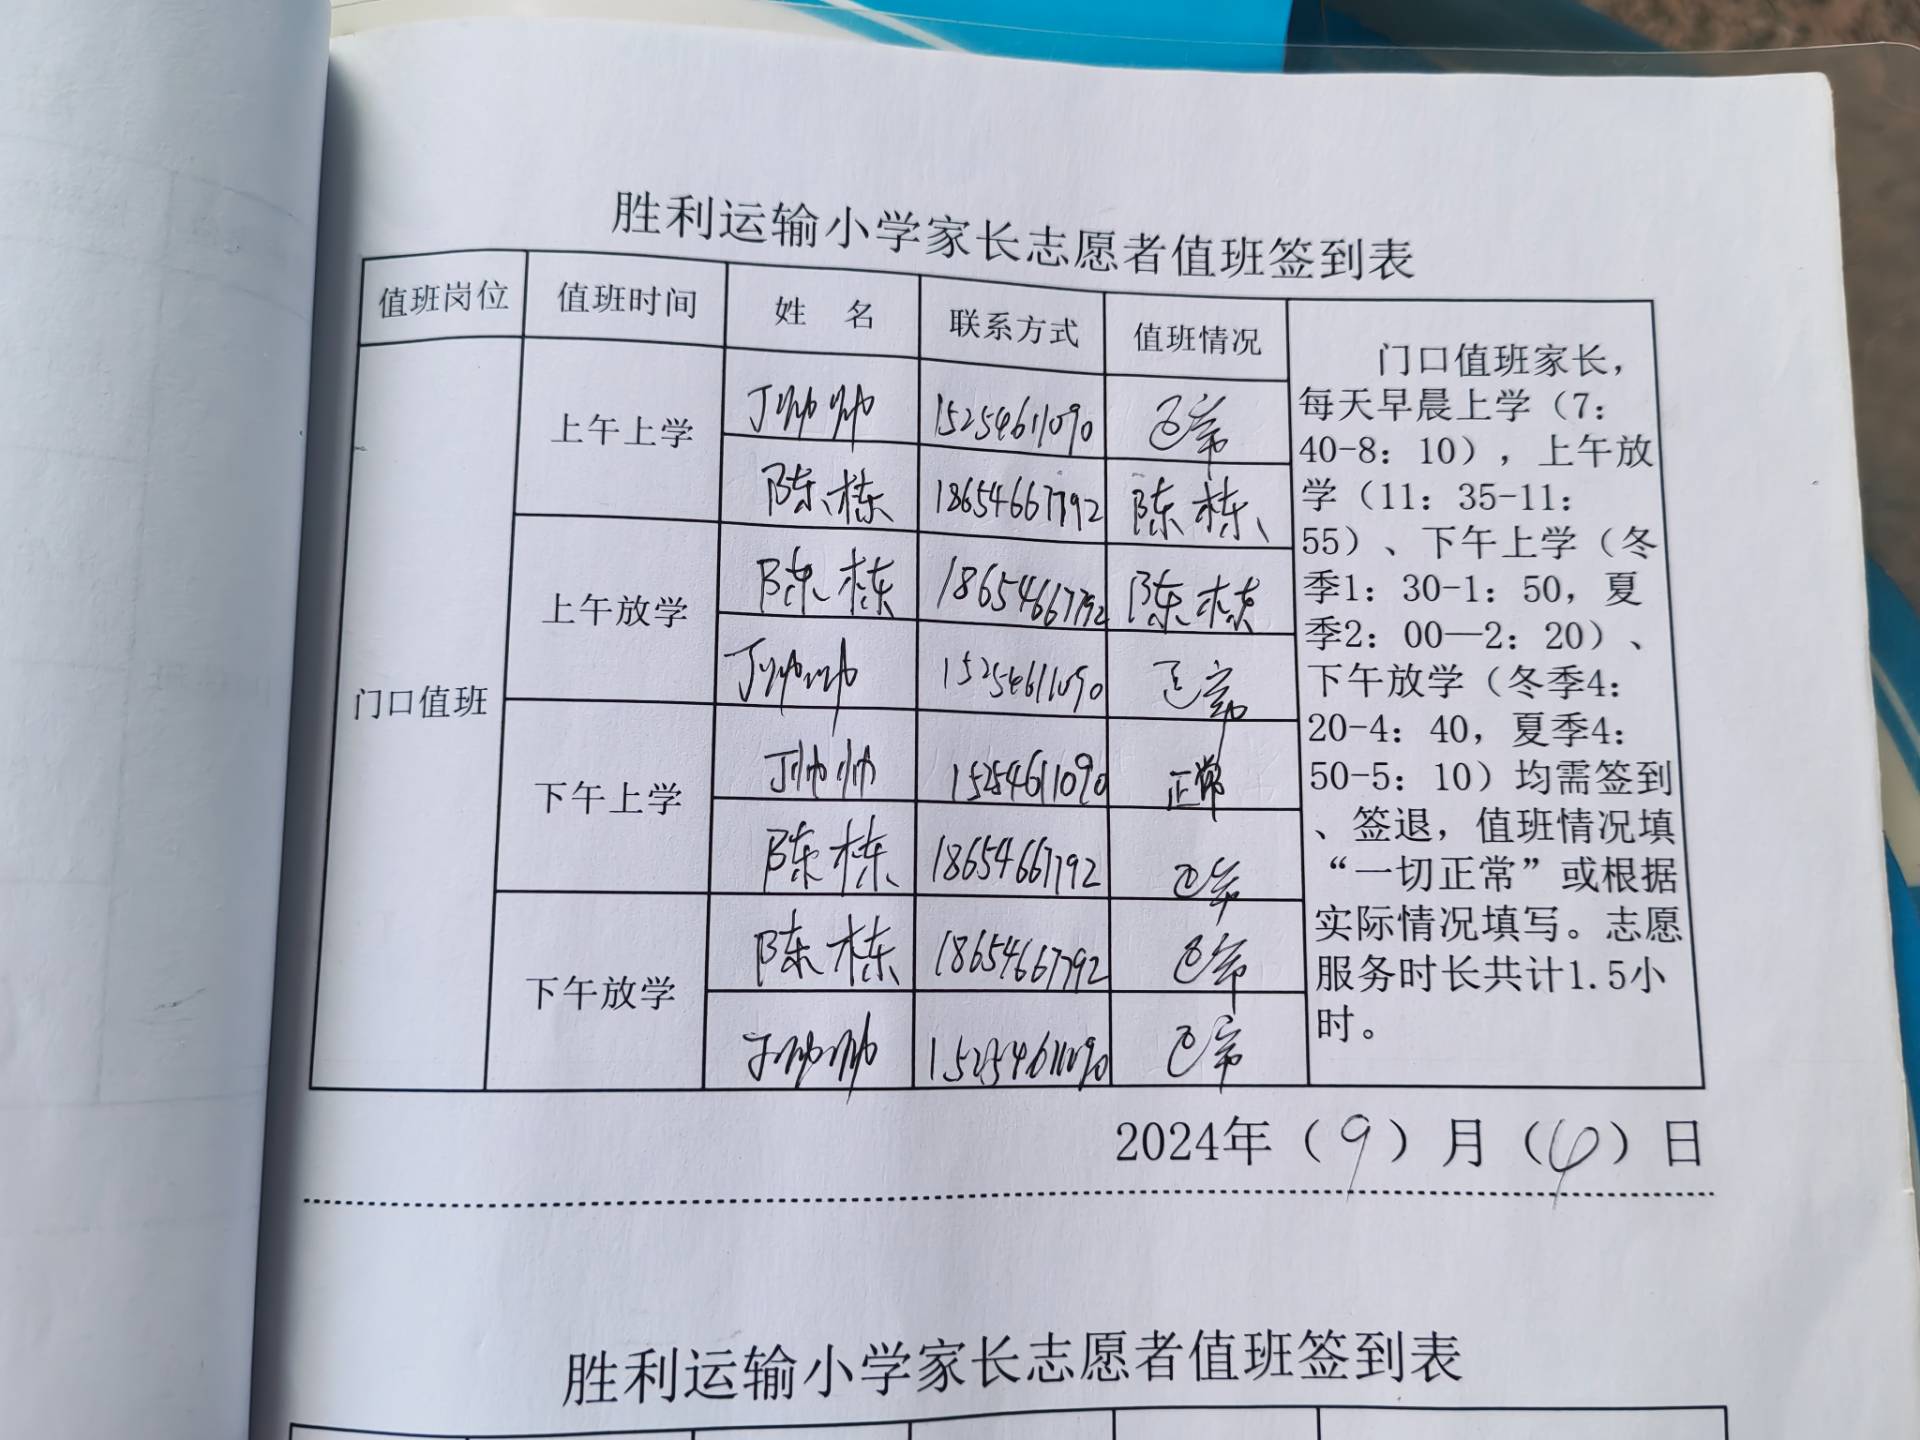 胜利运输小学家长志愿者值班签到表
值班岗位 值班时间 姓 名 联系方式 值班情况
门口值班
上午上学 丁帅帅 15254611090 正常
陈栋 18654667792 陈栋
上午放学 陈栋 18654667792 陈栋
丁帅帅 15254611090 正常
下午上学 丁帅帅 15254611090 正常
陈栋 18654667792 正常
下午放学 陈栋 18654667792 正常
丁帅帅 15254611090 正常
门口值班家长，
每天早晨上学（7：
40-8：10），上午放
学（11：35-11：
55）、下午上学（冬
季1：30-1：50，夏
季2：00—2：20）、
下午放学（冬季4：
20-4：40，夏季4：
50-5：10）均需签到
、签退，值班情况填
“一切正常”或根据
实际情况填写。志愿
服务时长共计1.5小
时。
2024年（9）月（4）日
胜利运输小学家长志愿者值班签到表